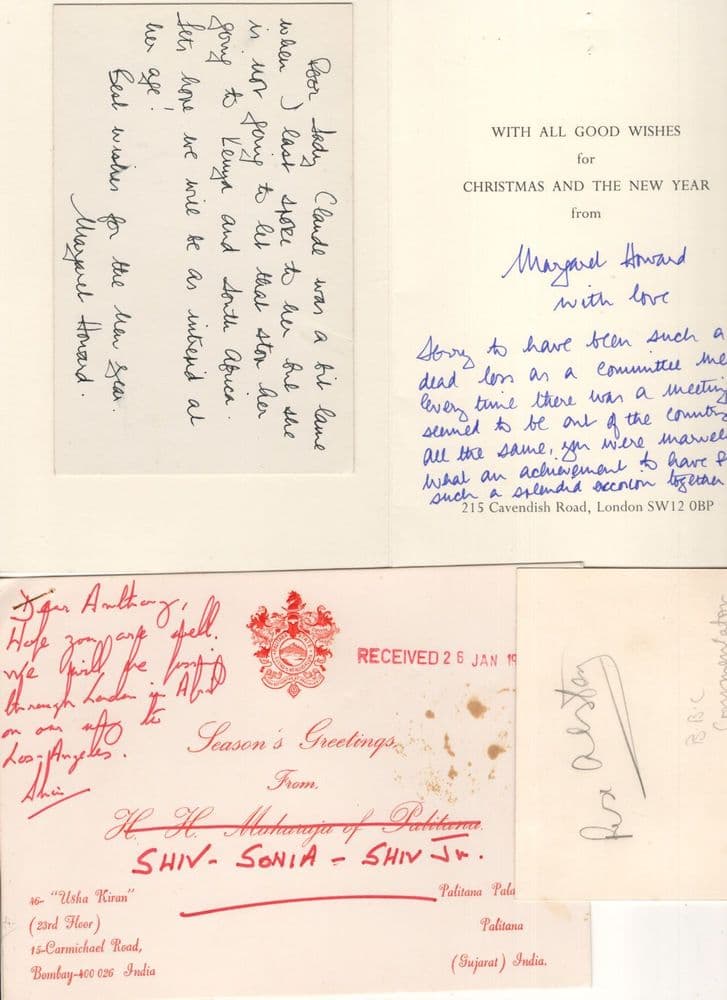 Poor Lady Claude was a bit lame
when I last spoke to her but she
is not going to let that stop her
going to Kenya and South Africa.
Lets hope we will be as intrepid at
her age!
Best wishes for the New Year.
Margaret Howard.
WITH ALL GOOD WISHES
for
CHRISTMAS AND THE NEW YEAR
from
Margaret Howard
with love
Sorry to have been such a
dead loss as a committee me
every time there was a meeting
seemed to be out of the country
All the same, you were marvel
what an achievement to have
such a splendid occasion together
215 Cavendish Road, London SW12 0BP
Dear Anthony,
Hope you are well.
We will be
through London in April
on our way to
Los-Angeles.
Shiv
RECEIVED 26 JAN 19
Season's Greetings
From
H. H. Maharaja of Palitana
SHIV - SONIA - SHIV Jr.
46- "Usha Kiran"
(23rd Floor)
15-Carmichael Road,
Bombay-400 026 India
Palitana Pala
Palitana
(Gujarat) India.
Rex Alston
BBC
Commentator